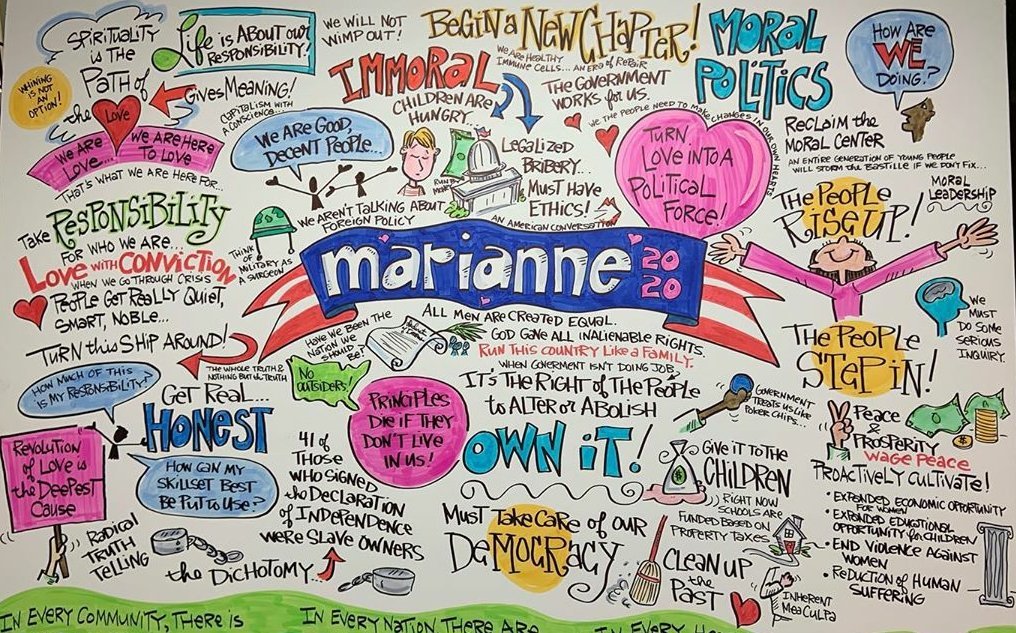 SPIRITUALITY
IS THE
PATH OF
the Love
WHINING IS
NOT AN
OPTION!
Life is ABOUT our
RESPONSIBILITY!
GIVES MEANING!
WE ARE
LOVE...
WE ARE HERE
TO LOVE
THAT'S WHAT WE ARE HERE FOR...
CAPITALISM WITH
A CONSCIENCE...
WE WILL NOT
WIMP OUT!
IMMORAL
CHILDREN ARE
HUNGRY...
WE ARE GOOD,
DECENT PEOPLE...
BEGIN A NEW CHAPTER!
WE ARE HEALTHY
IMMUNE CELLS... AN ERA OF REPAIR
THE GOVERNMENT
WORKS FOR US.
WE THE PEOPLE NEED TO MAKE CHANGES IN OUR OWN HEARTS
MORAL
POLITICS
HOW ARE
WE
DOING?
RECLAIM THE
MORAL CENTER
AN ENTIRE GENERATION OF YOUNG PEOPLE
WILL STORM THE BASTILLE IF WE DON'T FIX...
TURN
LOVE INTO A
POLITICAL
FORCE!
LEGALIZED
BRIBERY...
MUST HAVE
ETHICS!
AN AMERICAN CONVERSATION
RUN BY
WE AREN'T TALKING ABOUT
FOREIGN POLICY
THINK OF
MILITARY AS
A SURGEON
THE PEOPLE
RISE UP!
MORAL
LEADERSHIP
Take RESPONSIBILITY
FOR WHO WE ARE...
LOVE WITH CONVICTION
WHEN WE GO THROUGH CRISIS
PEOPLE GET REALLY QUIET,
SMART, NOBLE...
TURN this SHIP AROUND!
marianne 20
20
ALL MEN ARE CREATED EQUAL.
GOD GAVE ALL INALIENABLE RIGHTS.
RUN THIS COUNTRY LIKE A FAMILY.
WHEN GOVERMENT ISN'T DOING JOB,
IT'S THE RIGHT OF THE PEOPLE
to ALTER or ABOLISH
WE
MUST
DO SOME
SERIOUS
INQUIRY.
THE PEOPLE
STEP IN!
HAVE WE BEEN THE
NATION WE
SHOULD
BE?
THE WHOLE TRUTH &
NOTHING BUT the TRUTH
NO
OUTSIDERS!
HOW MUCH OF THIS
IS MY RESPONSIBILITY?
GET REAL...
HONEST
PRINCIPLES
DIE IF THEY
DON'T LIVE
IN US!
OWN iT!
GOVERNMENT
TREATS US LIKE
POKER CHIPS...
PEACE
&
PROSPERITY
WAGE PEACE
REVOLUTION
of LOVE is
the DEEPEST
CAUSE
HOW CAN MY
SKILLSET BEST
BE PUT TO USE?
41 OF
THOSE
WHO SIGNED
the DECLARATION
of INDEPENDENCE
WERE SLAVE OWNERS
GIVE IT TO THE
CHILDREN
RIGHT NOW
SCHOOLS ARE
FUNDED BASED ON
PROPERTY TAXES.
PROACTIVELY CULTIVATE!
• EXPANDED ECONOMIC OPPORTUNITY
FOR WOMEN
• EXPANDED EDUCTIONAL
OPPORTUNITY for CHILDREN
• END VIOLENCE AGAINST
WOMEN
• REDUCTION OF HUMAN
SUFFERING
RADICAL
TRUTH
TELLING
the DICHOTOMY
MUST TAKE CARE OF OUR
DEMOCRACY
CLEAN UP
the
PAST
INHERENT
MEA CULPA
IN EVERY COMMUNITY, THERE IS
IN EVERY NATION THERE ARE
IN EVERY